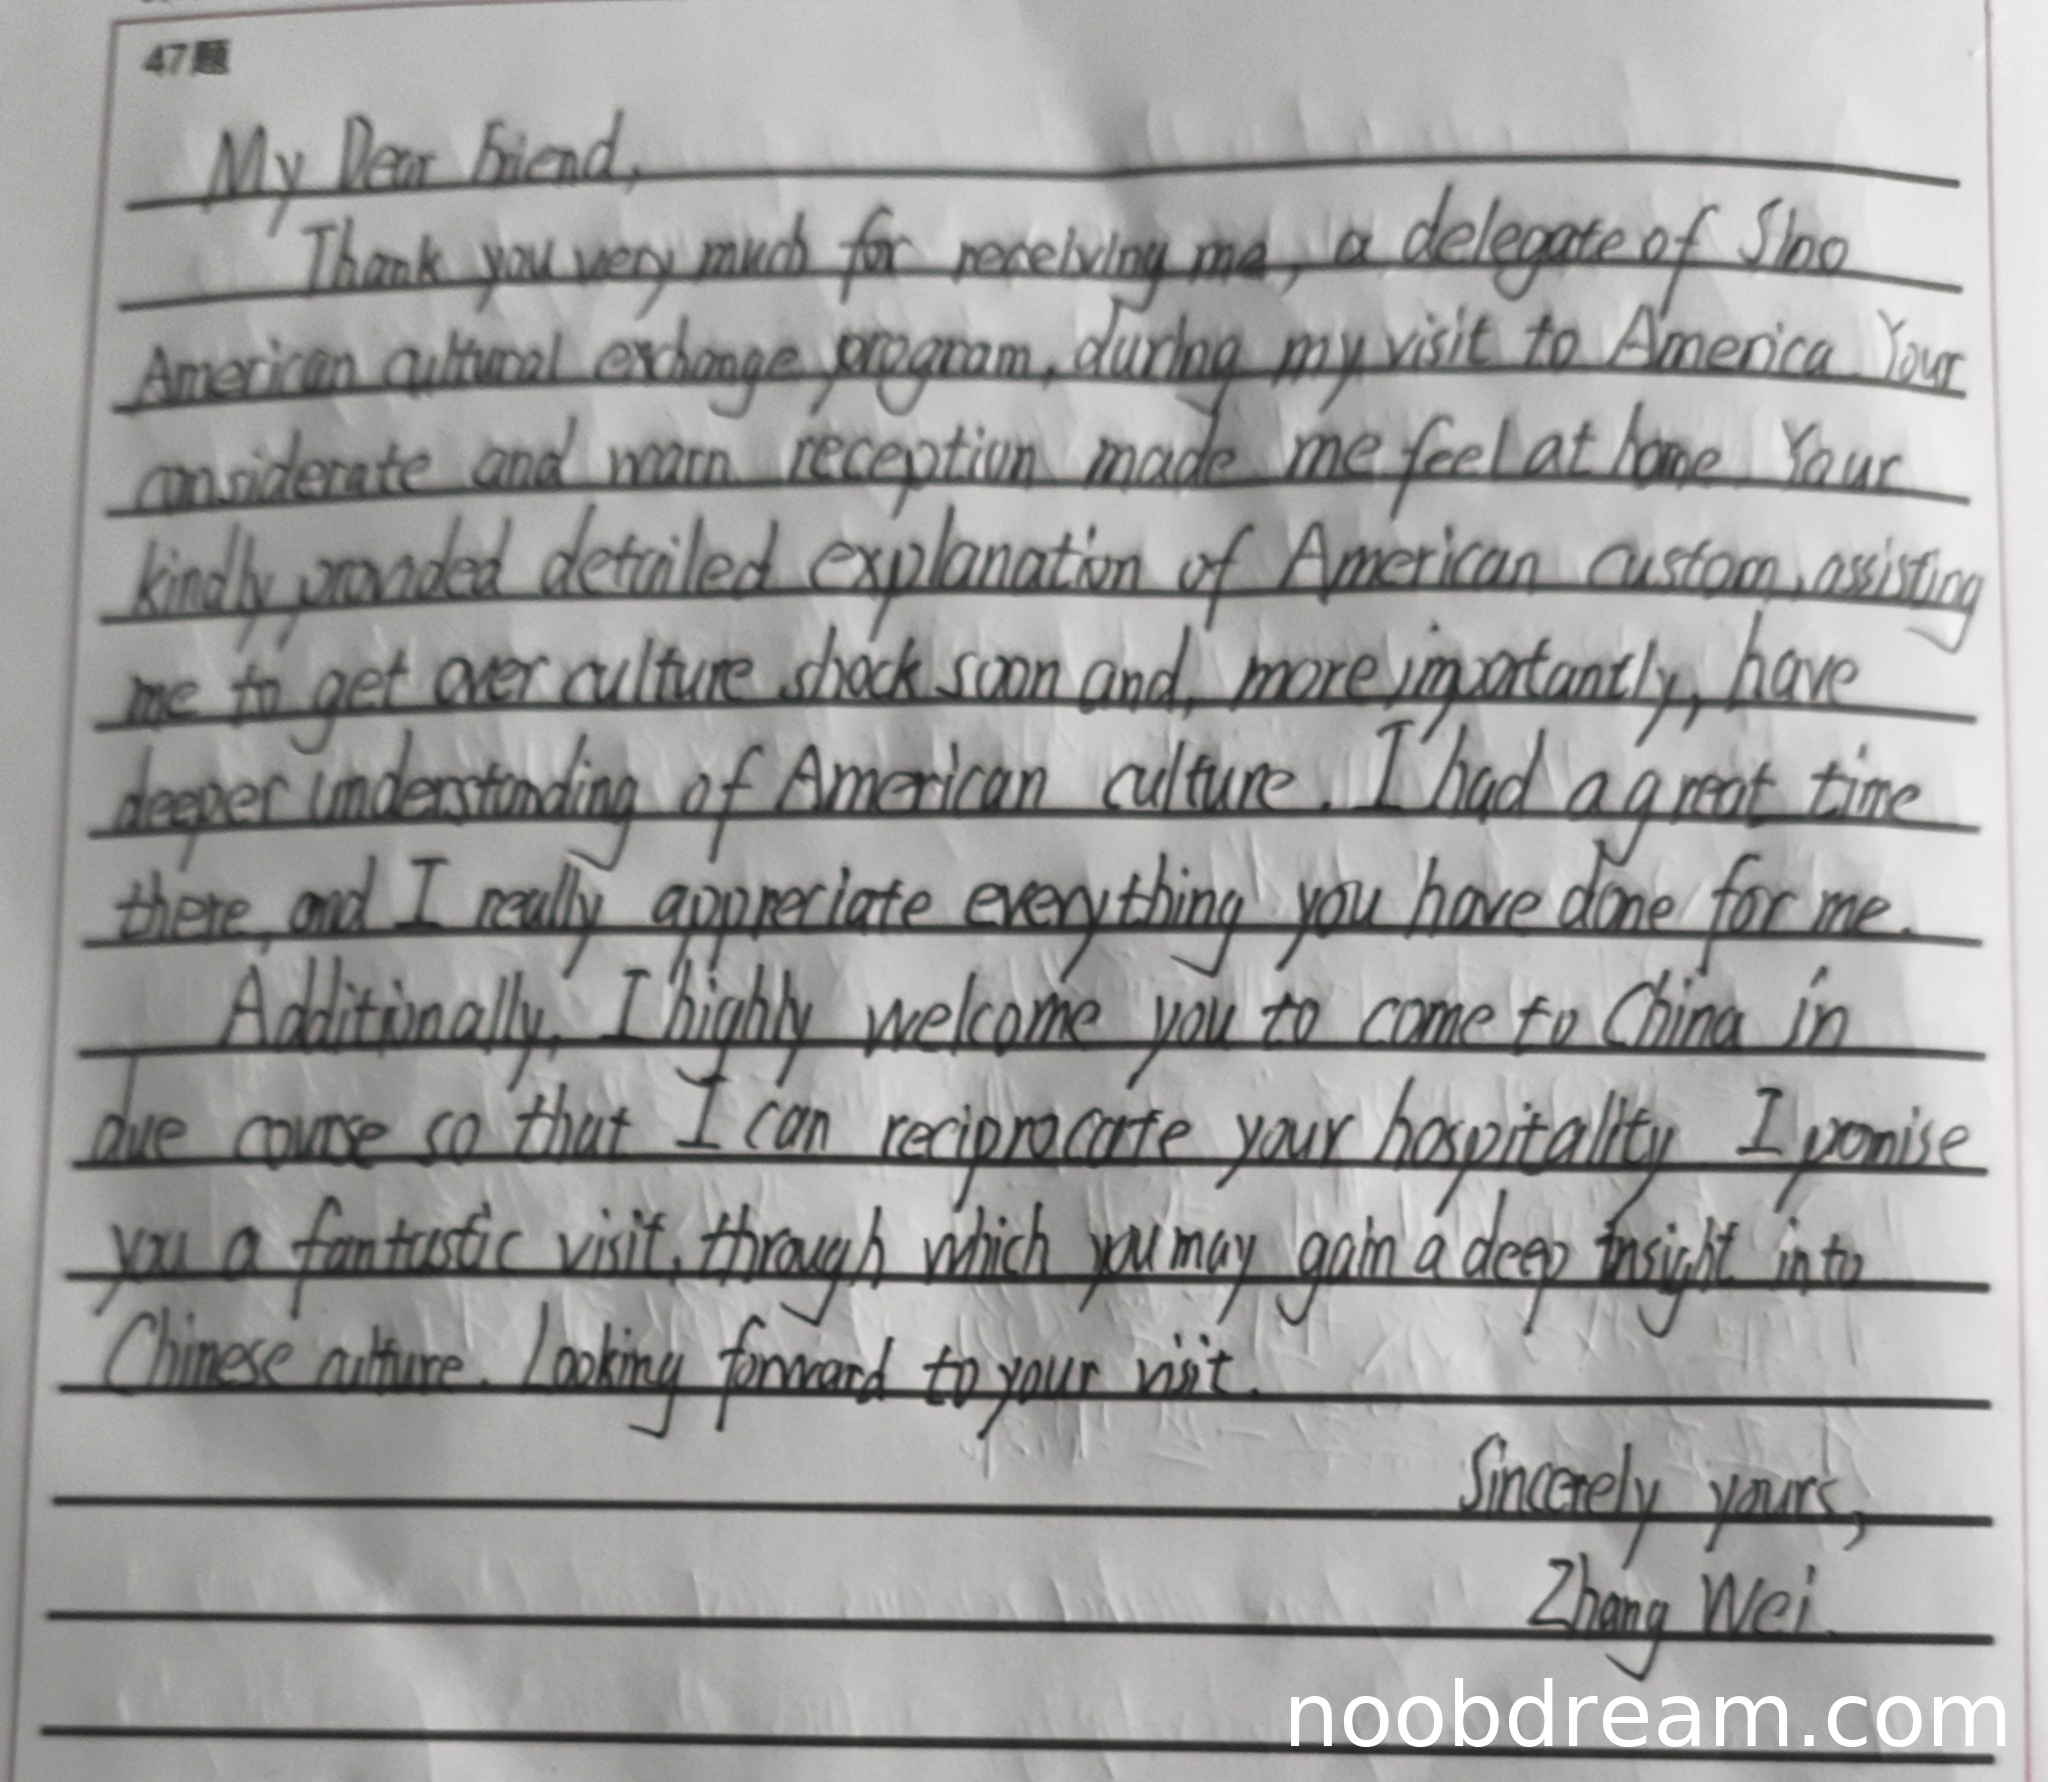 47题
My Dear Friend,
Thank you very much for receiving me, a delegate of Sino
American cultural exchange program, during my visit to America. Your
considerate and warm reception made me feel at home. Your
kindly provided detailed explanation of American custom, assisting
me to get over culture shock soon and, more importantly, have
deeper understanding of American culture. I had a great time
there, and I really appreciate everything you have done for me.
Additionally, I highly welcome you to come to China in
due course so that I can reciprocate your hospitality. I promise
you a fantastic visit, through which you may gain a deep insight into
Chinese culture. Looking forward to your visit.
Sincerely yours,
Zhang Wei
noobdream.com